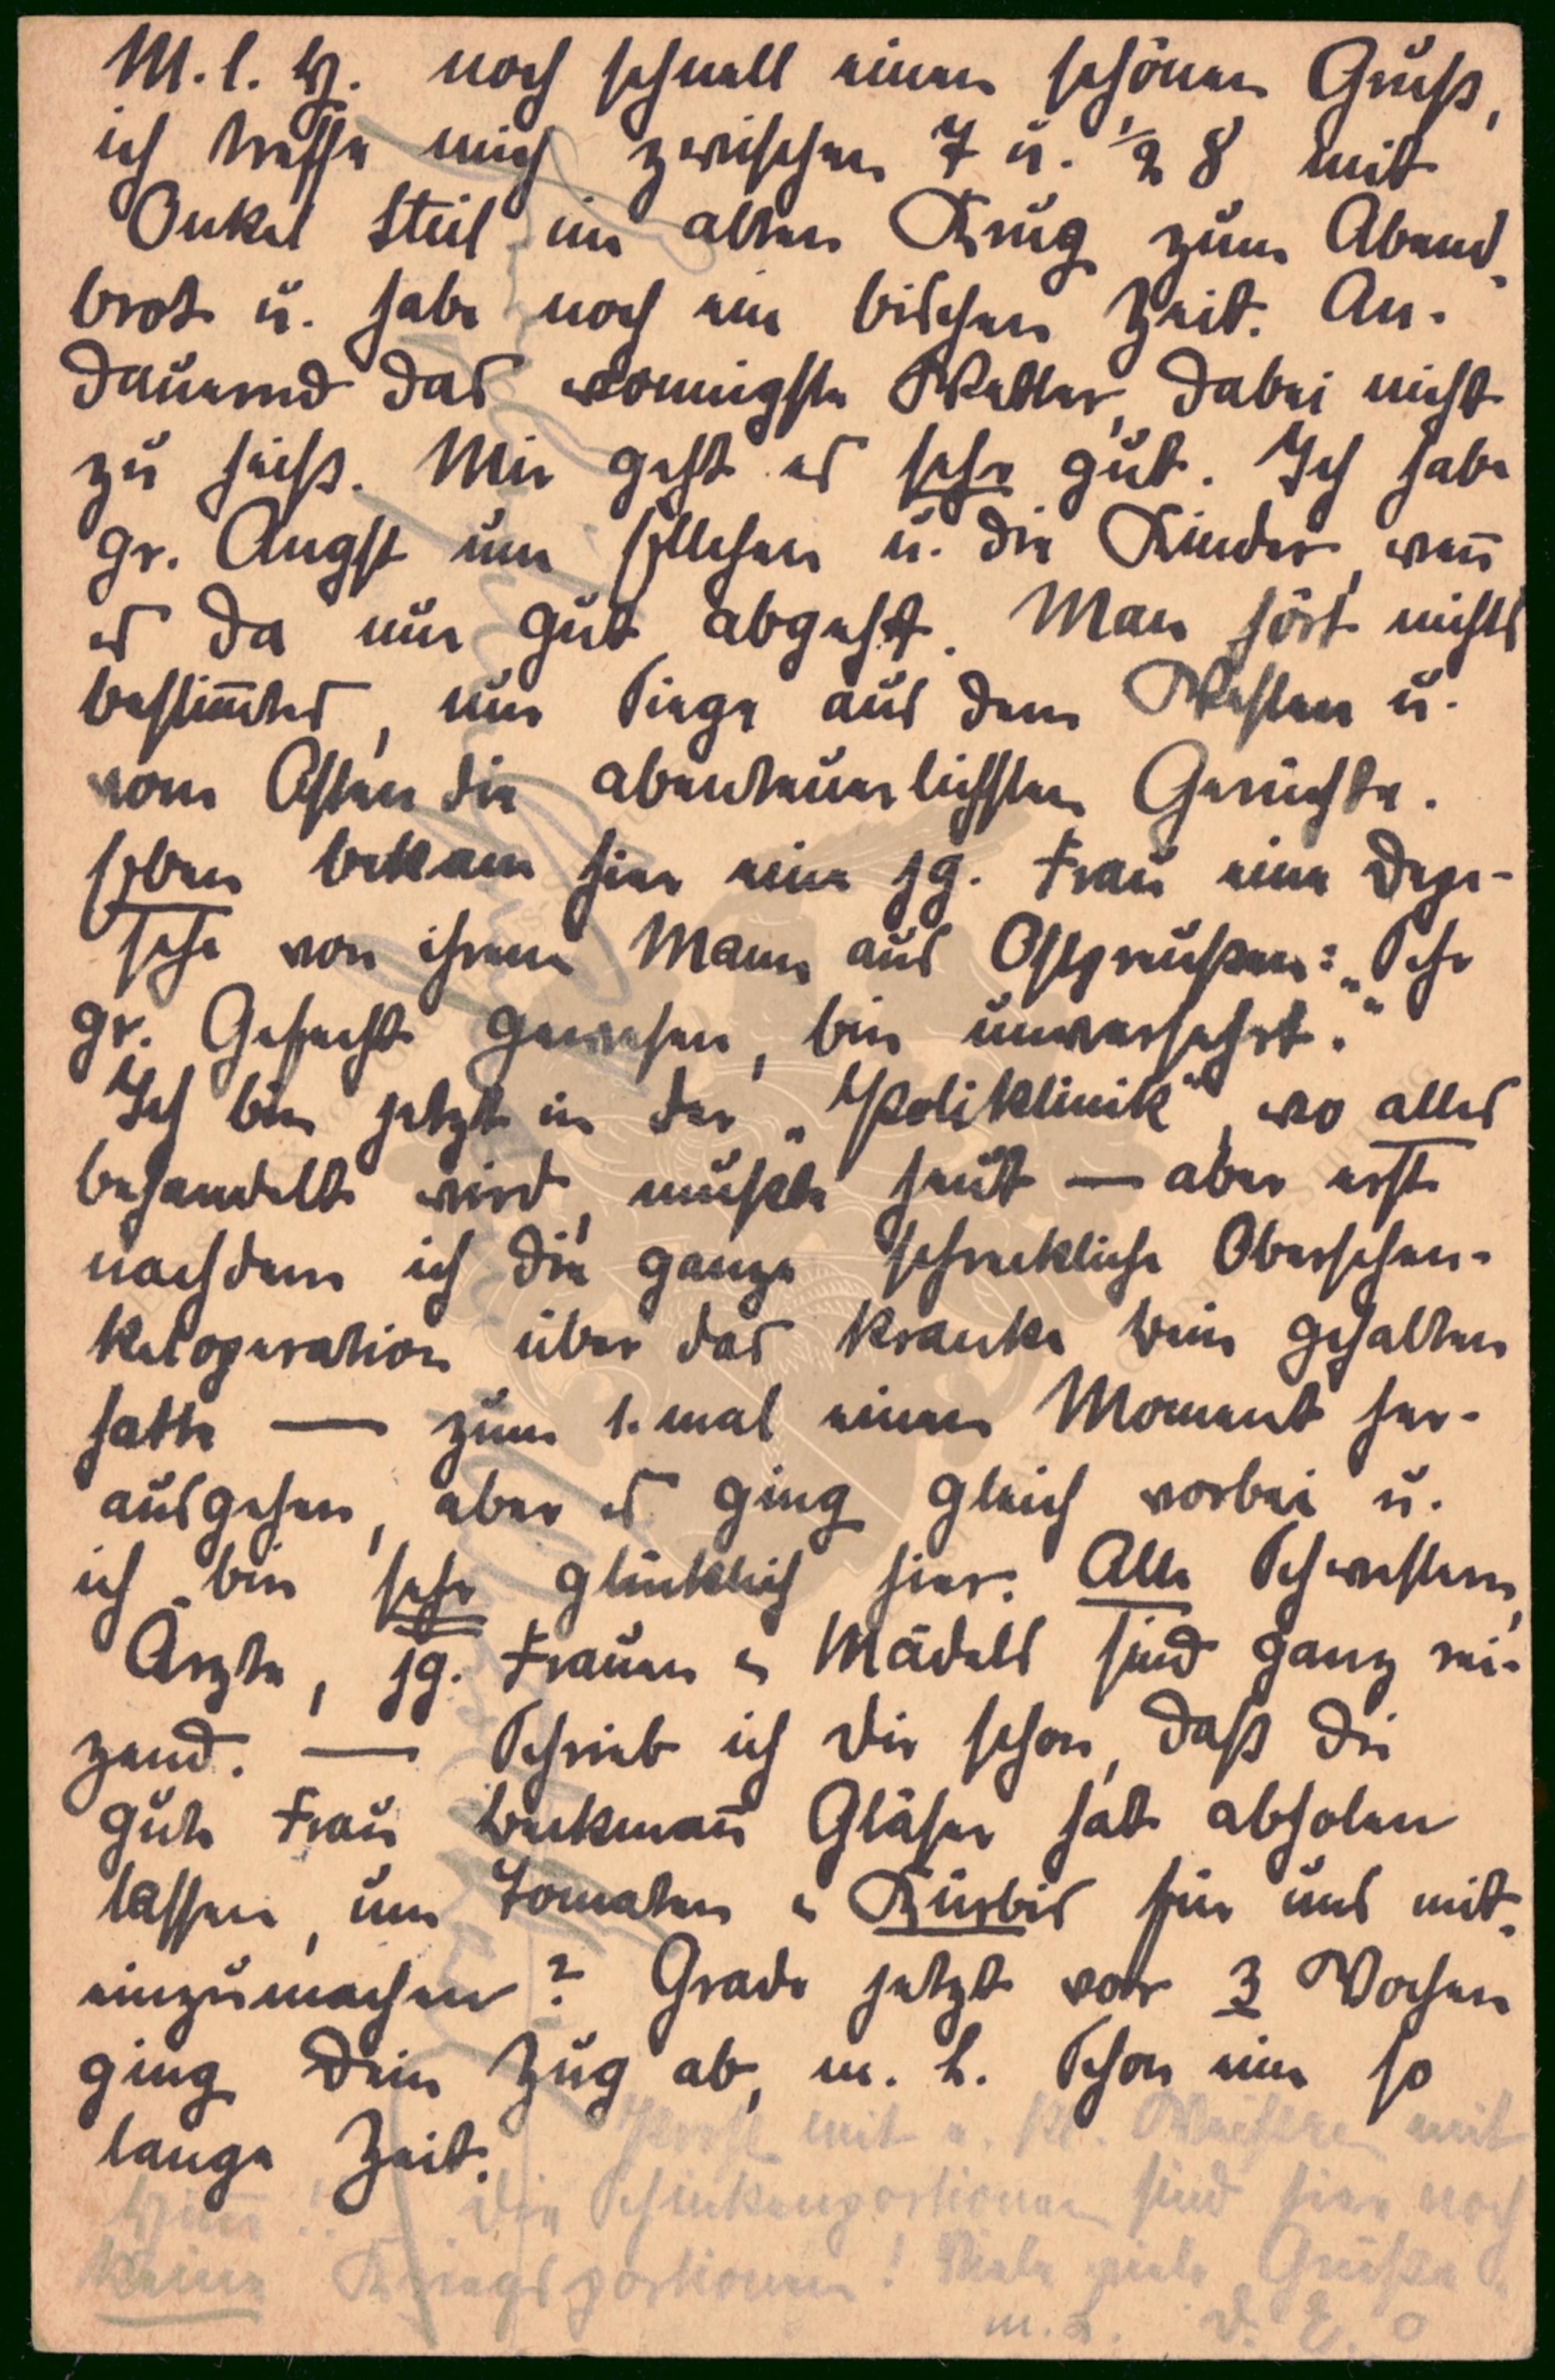 M. l. H. noch schnell einen schönen Gruß,
ich treffe mich zwischen 7 u. ½ 8 mit
Onkel Steil im alten Krug zum Abend-
brot u. habe noch ein bischen Zeit. An-
dauernd das wonnigste Wetter, dabei nicht
zu heiß. Mir geht es sehr gut. Ich habe
gr. Angst um Ellchen u. die Kinder, weñ
es da nur gut abgeht. Man hört nichts
bestim̄tes, nur Siege aus dem Westen u.
vom Osten die abenteuerlichsten Gerüchte.
Eben bekam hier eine jg. Frau eine Depe-
sche von ihrem Mann aus Ostpreußen: „Sehr
gr. Gefecht gewesen, bin unversehrt."
Ich bin jetzt in der „Poliklinik", wo alles
behandelt wird, mußte heut — aber erst
nachdem ich die ganze schreckliche Oberschen-
keloperation über das kranke Bein gehalten
hatte — zum 1. mal einen Moment her-
ausgehen, aber es ging gleich vorbei u.
ich bin sehr glücklich hier. Alle Schwestern,
Ärzte, jg. Frauen u Mädels sind ganz rei-
zend. — Schrieb ich Dir schon, daß die
gute Frau Beckmañ Gläser hat abholen
lassen, um Tomaten u Kürbis für uns mit-
einzumachen? Grade jetzt vor 3 Wochen
ging Dein Zug ab, m. L. Schon eine so
lange Zeit.
Prost mit e. Kl. mit
Die Schinkenportionen sind hier noch
keine Kriegsportionen! Viele viele Grüße
m. L. D. E.